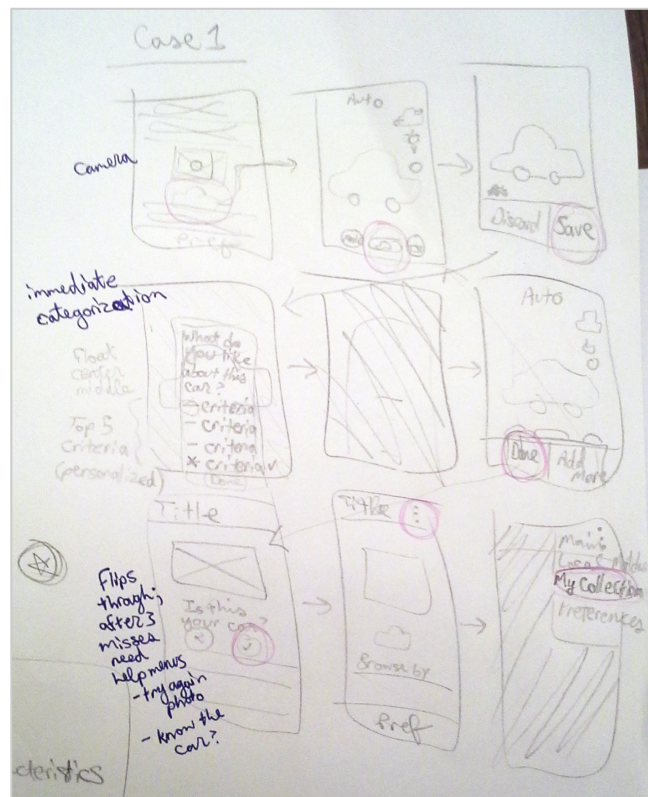 Case 1
camera
Pref
Auto
Discard
Save
immediate
categorization
Float
center
middle
Top 5
criteria
(personalized)
What do
you like
about this
car?
criteria
- criteria
- criteria
x criteria
Done
Auto
Done
Add
More
Title
Is this
your car?
Flips
through;
after 3
misses
need
help menus
- try again
photo
- know the
car?
Title
Browse by
Pref
Main
My Collection
Preferences
cteristics